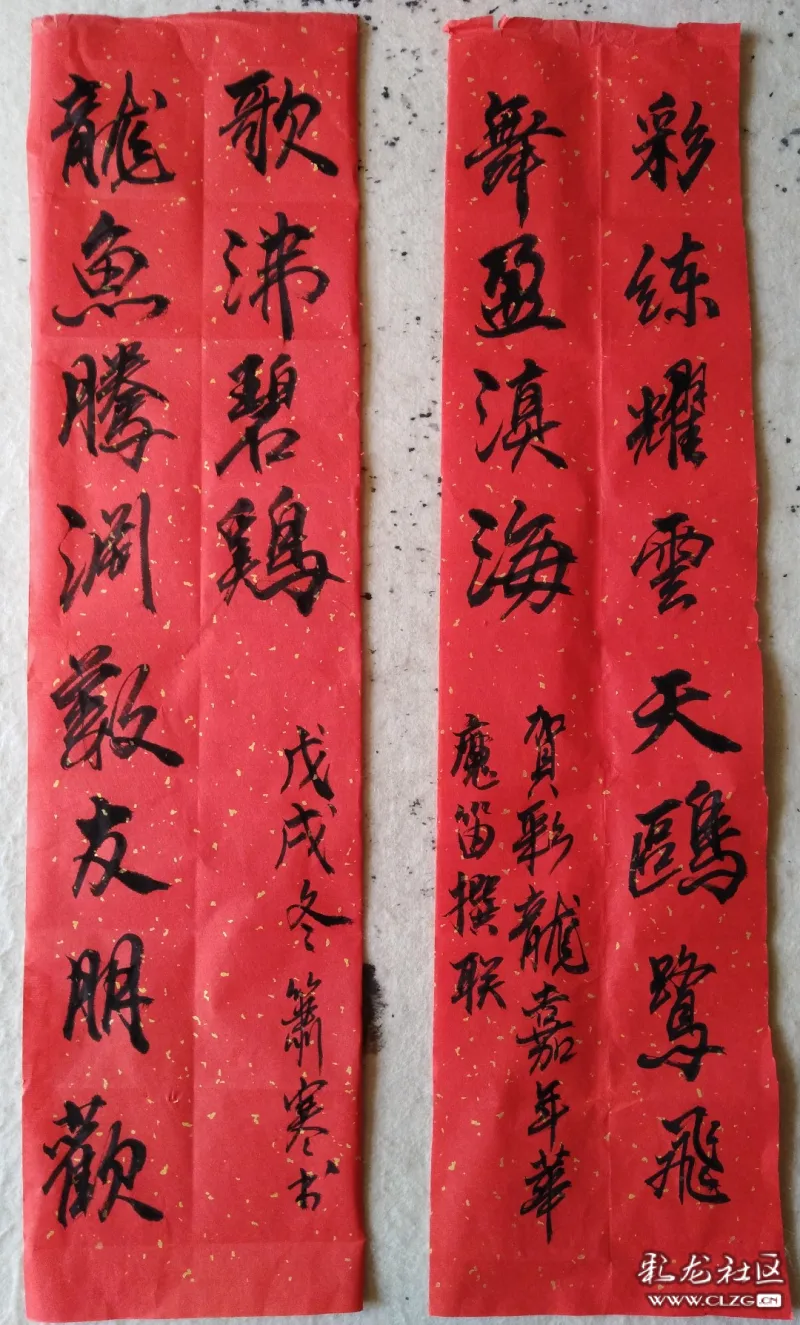 彩练耀雲天鷗鷺飛
舞盈滇海
賀彩龍嘉年華
魔笛撰联
龍魚騰渊薮友朋歡
歌沸碧鷄
戊戌冬箫寒书
彩龙社区
WWW.CLZG.CN